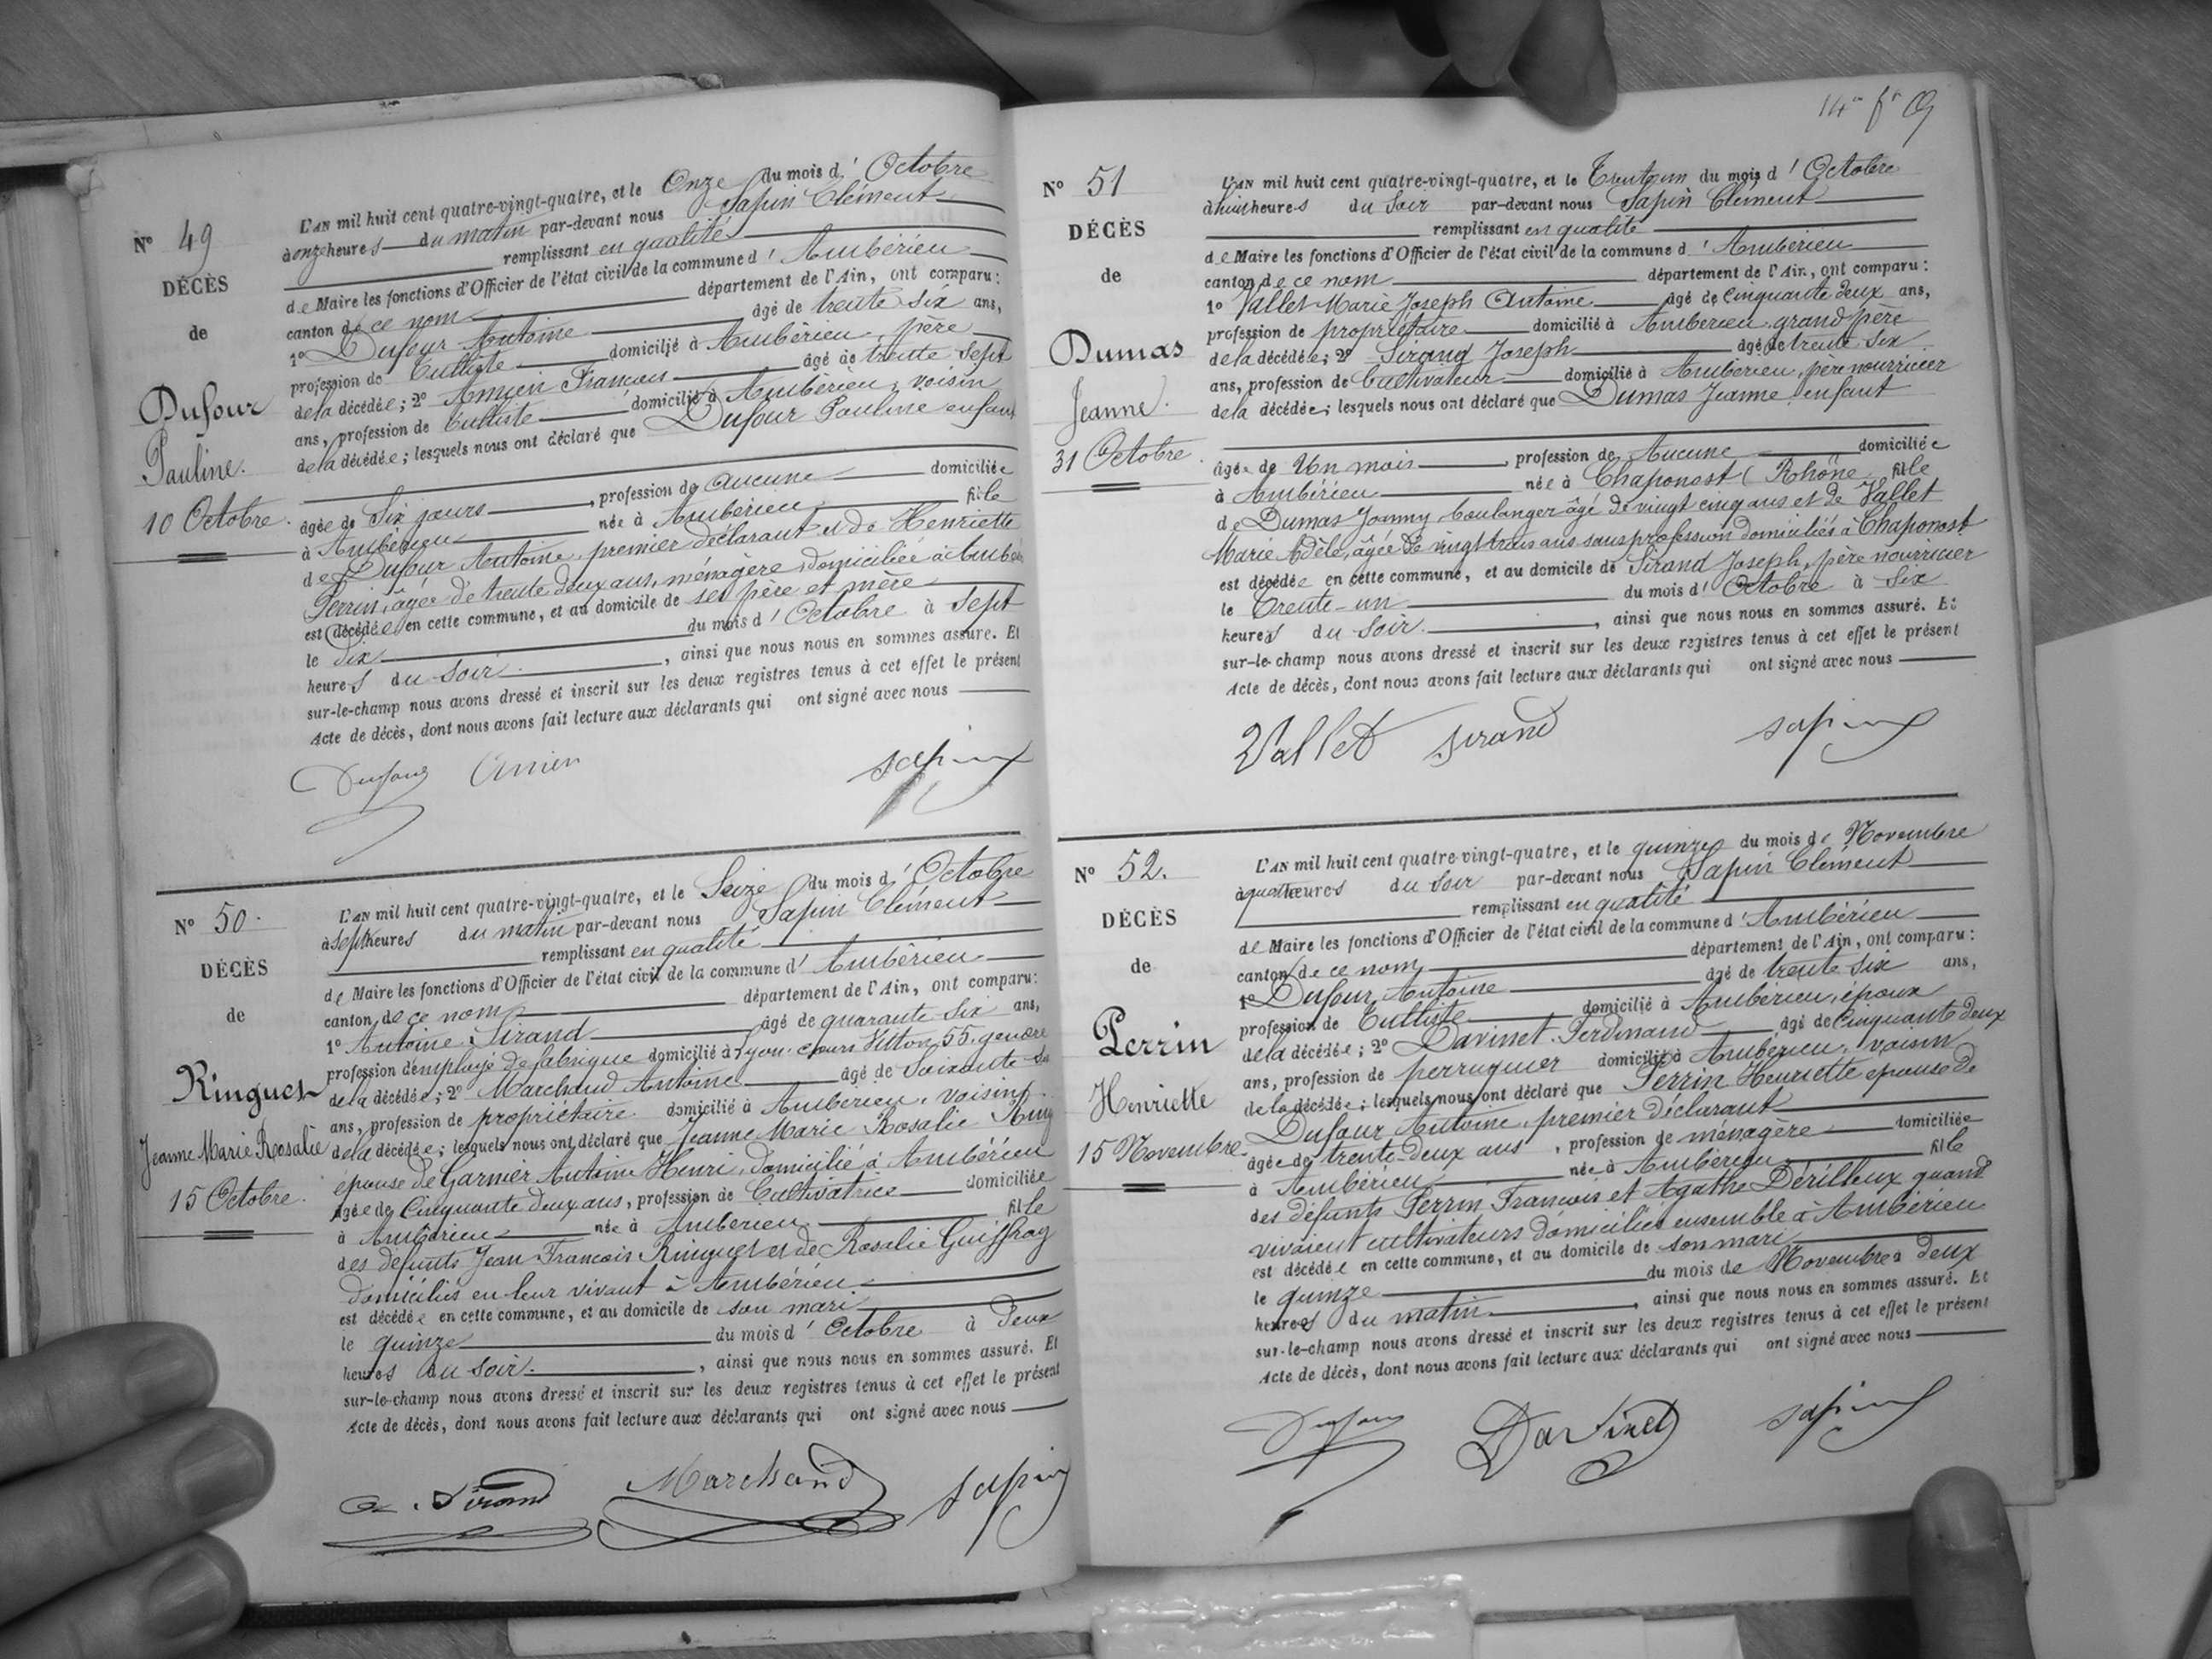 N° 49
DÉCÈS
de
Dufour
Pauline.
10 Octobre.
L'AN mil huit cent quatre-vingt-quatre, et le Onze du mois d' Octobre
à onze heures du matin par-devant nous Sapin Clément
remplissant en qualité
de Maire les fonctions d'Officier de l'état civil de la commune d' Ambérieu
canton de ce nom département de l'Ain, ont comparu:
1° Dufour Antoine âgé de trente six ans,
profession de Tulliste domicilié à Ambérieu, père
de la décédée; 2° Amien François âgé de trente sept
ans, profession de Tulliste domicilié à Ambérieu, voisin
de la décédée; lesquels nous ont déclaré que Dufour Pauline enfant
âgée de Six jours, profession de aucune domiciliée
à Ambérieu née à Ambérieu fille
de Dufour Antoine premier déclarant et de Henriette
Perrin, âgée de trente deux ans, ménagère, domiciliée à Ambé
est décédée en cette commune, et au domicile de ses père et mère
le dix du mois d' Octobre à Sept
heures du soir, ainsi que nous nous en sommes assuré. Et
sur-le-champ nous avons dressé et inscrit sur les deux registres tenus à cet effet le présent
Acte de décès, dont nous avons fait lecture aux déclarants qui ont signé avec nous
Dufour Amien Sapin
N° 50.
DÉCÈS
de
Ringuet
Jeanne Marie Rosalie
15 Octobre.
L'AN mil huit cent quatre-vingt-quatre, et le Seize du mois d' Octobre
à sept heures du matin par-devant nous Sapin Clément
remplissant en qualité
de Maire les fonctions d'Officier de l'état civil de la commune d' Ambérieu
canton de ce nom département de l'Ain, ont comparu:
1° Antoine Sirand âgé de quarante six ans,
profession d'employé de fabrique domicilié à Lyon cours Vitton 55, gendre
de la décédée; 2° Marchand Antoine âgé de Soixante
ans, profession de propriétaire domicilié à Ambérieu, voisin
de la décédée; lesquels nous ont déclaré que Jeanne Marie Rosalie Ring
épouse de Garnier Antoine Henri, domicilié à Ambérieu
âgée de Cinquante deux ans, profession de Cultivatrice domiciliée
à Ambérieu née à Ambérieu fille
des défunts Jean François Ringuet et de Rosalie Guiffray
domiciliés en leur vivant à Ambérieu
est décédée en cette commune, et au domicile de son mari
le quinze du mois d' Octobre à deux
heures du soir, ainsi que nous nous en sommes assuré. Et
sur-le-champ nous avons dressé et inscrit sur les deux registres tenus à cet effet le présent
Acte de décès, dont nous avons fait lecture aux déclarants qui ont signé avec nous
A. Sirand Marchand Sapin
N° 51
DÉCÈS
de
Dumas
Jeanne.
31 Octobre.
L'AN mil huit cent quatre-vingt-quatre, et le Trente un du mois d' Octobre
à huit heures du soir par-devant nous Sapin Clément
remplissant en qualité
de Maire les fonctions d'Officier de l'état civil de la commune d' Ambérieu
canton de ce nom département de l'Ain, ont comparu:
1° Vallet Marie Joseph Antoine âgé de Cinquante deux ans,
profession de propriétaire domicilié à Ambérieu, grand père
de la décédée; 2° Sirand Joseph âgé de trente Six
ans, profession de Cultivateur domicilié à Ambérieu, père nourricier
de la décédée; lesquels nous ont déclaré que Dumas Jeanne enfant
âgée de Un mois, profession de Aucune domiciliée
à Ambérieu née à Chaponost (Rhône fille
de Dumas Joanny, boulanger âgé de vingt cinq ans et de Vallet
Marie Adèle, âgée de vingt trois ans sans profession domiciliés à Chaponost
est décédée en cette commune, et au domicile de Sirand Joseph, père nourricier
le Trente-un du mois d' Octobre à Six
heures du soir, ainsi que nous nous en sommes assuré. Et
sur-le-champ nous avons dressé et inscrit sur les deux registres tenus à cet effet le présent
Acte de décès, dont nous avons fait lecture aux déclarants qui ont signé avec nous
Vallet Sirand Sapin
N° 52.
DÉCÈS
de
Perrin
Henriette
15 Novembre.
L'AN mil huit cent quatre-vingt-quatre, et le quinze du mois de Novembre
à quatre heures du soir par-devant nous Sapin Clément
remplissant en qualité
de Maire les fonctions d'Officier de l'état civil de la commune d' Ambérieu
canton de ce nom département de l'Ain, ont comparu:
1° Dufour Antoine âgé de trente six ans,
profession de Tulliste domicilié à Ambérieu, époux
de la décédée; 2° Davinet Ferdinand âgé de Cinquante deux
ans, profession de perruquier domicilié à Ambérieu, voisin
de la décédée; lesquels nous ont déclaré que Perrin Henriette épouse de
Dufour Antoine, premier déclarant
âgée de trente-deux ans, profession de ménagère domiciliée
à Ambérieu née à Ambérieu fille
des défunts Perrin François et Agathe Dérilleux quand
vivaient cultivateurs domiciliés ensemble à Ambérieu
est décédée en cette commune, et au domicile de son mari
le quinze du mois de Novembre à deux
heures du matin, ainsi que nous nous en sommes assuré. Et
sur-le-champ nous avons dressé et inscrit sur les deux registres tenus à cet effet le présent
Acte de décès, dont nous avons fait lecture aux déclarants qui ont signé avec nous
Dufour Davinet Sapin